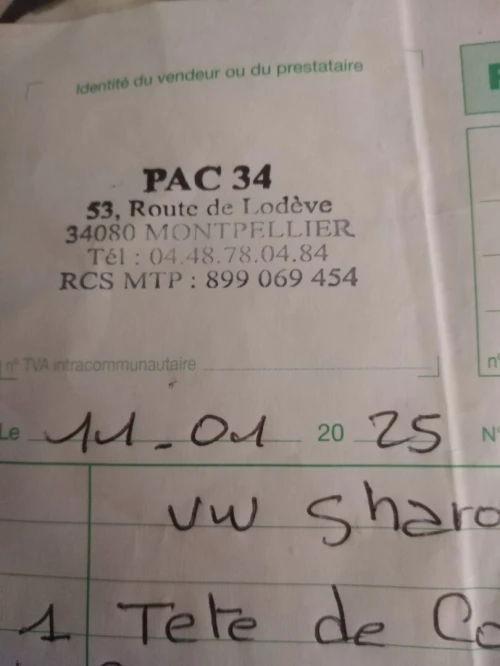 Identité du vendeur ou du prestataire
PAC 34
53, Route de Lodève
34080 MONTPELLIER
Tél : 04.48.78.04.84
RCS MTP : 899 069 454
n° TVA intracommunautaire
Le 11-01 2025 N°
VW Sharo
1 Tete de Co